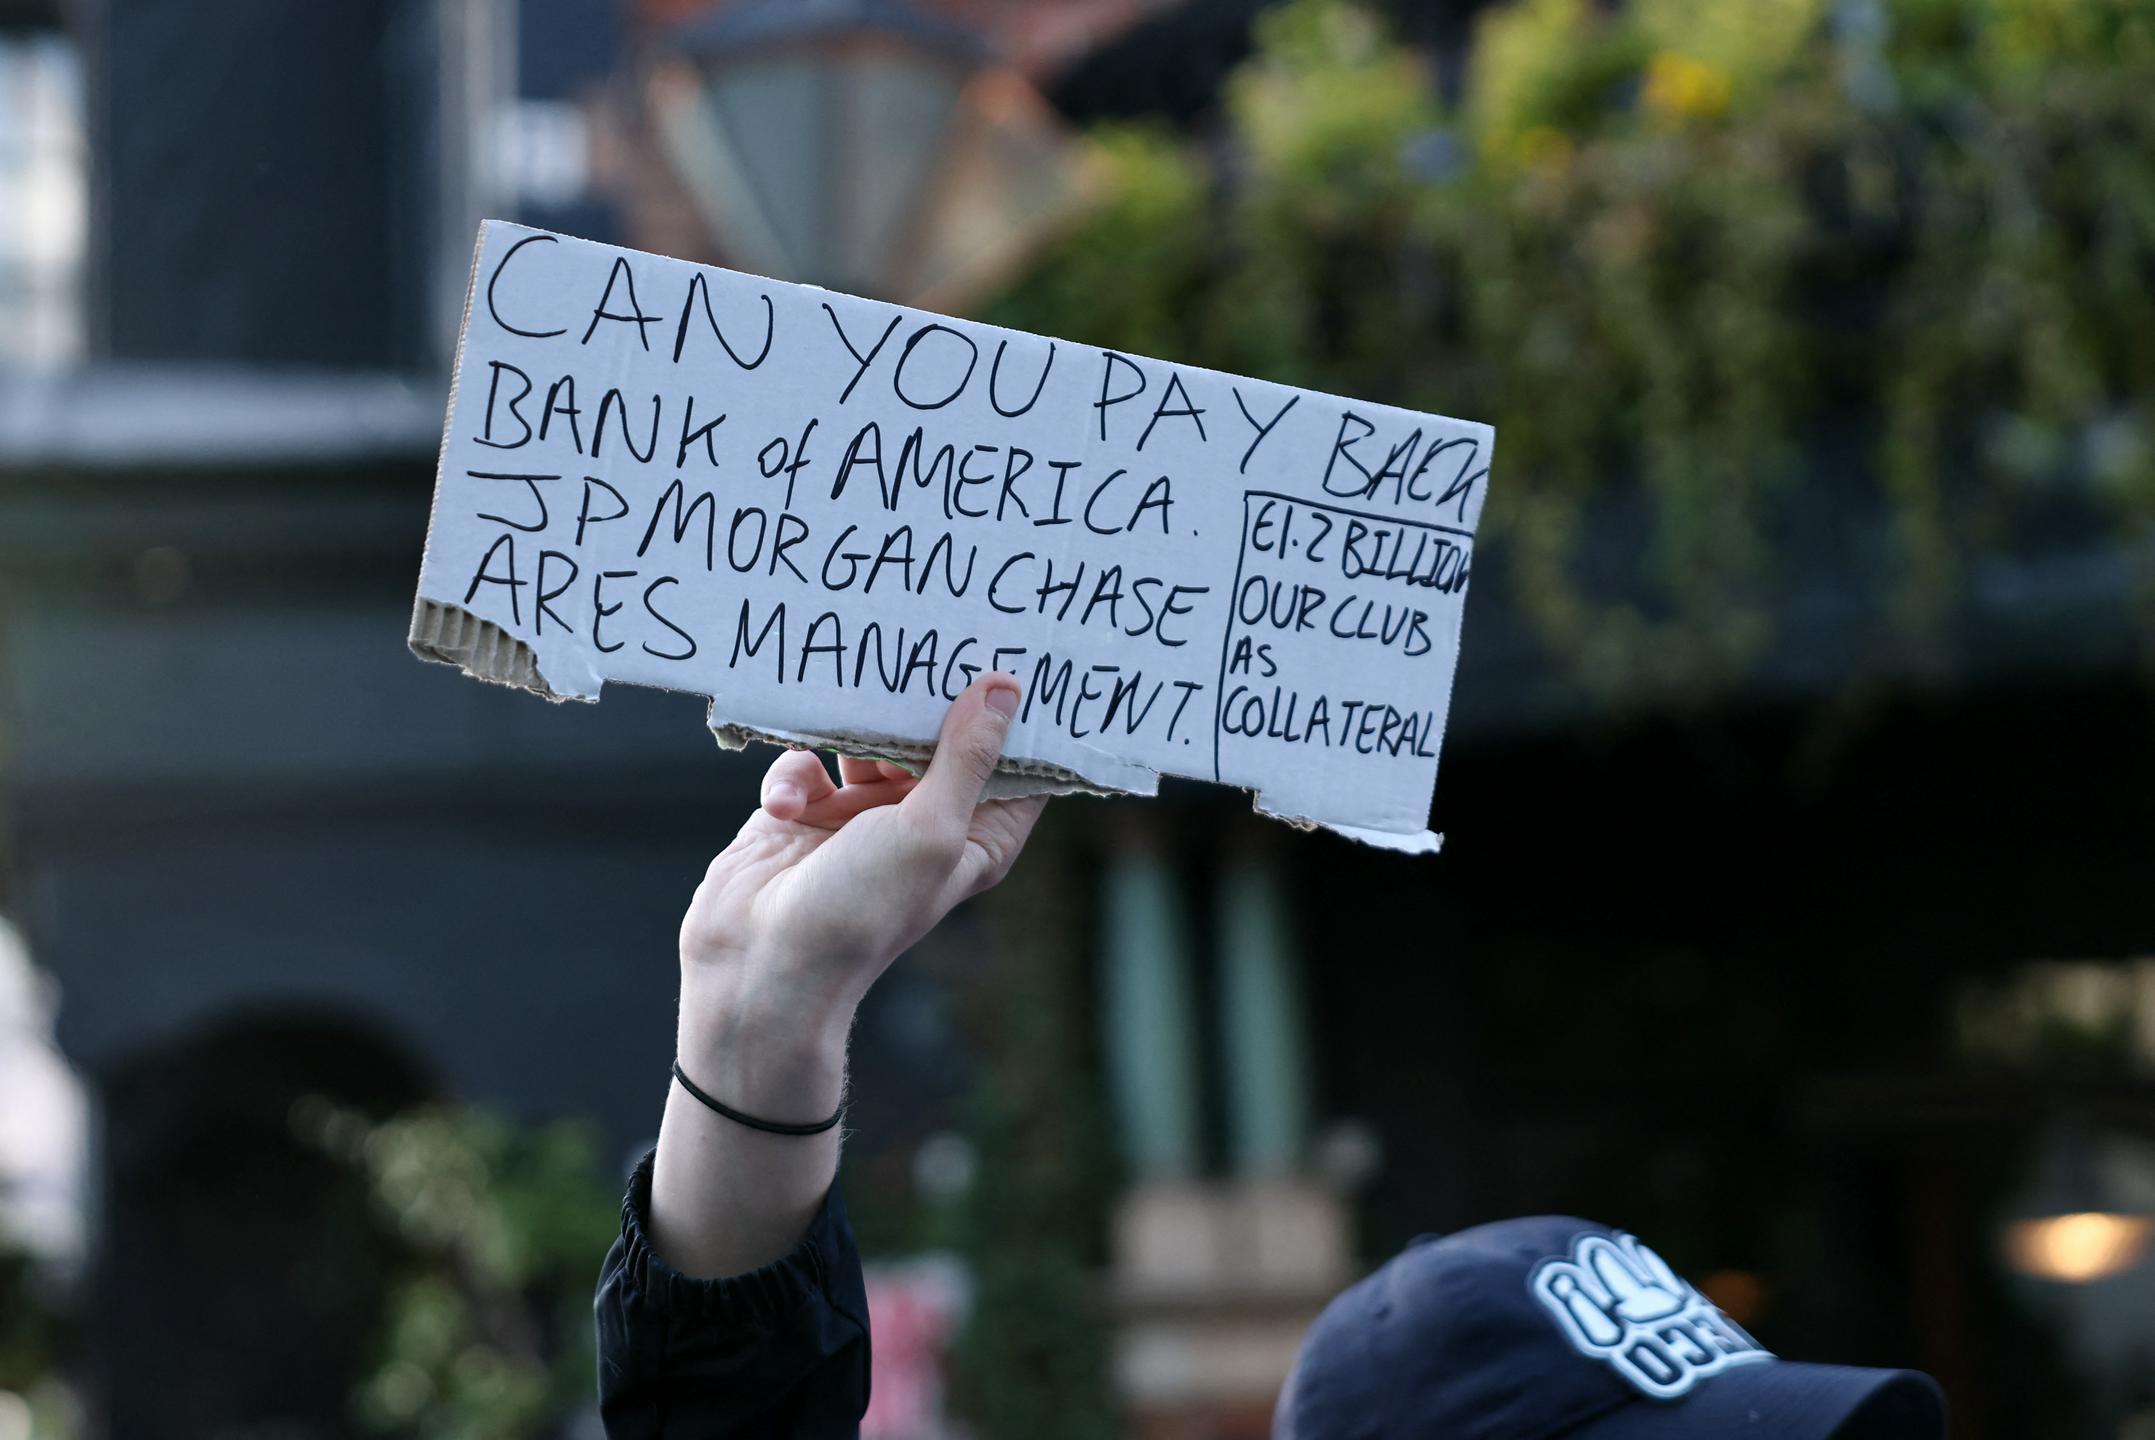 CAN YOU PAY BACK
BANK of AMERICA.
JP MORGAN CHASE
ARES MANAGEMENT.
£1.2 BILLION
OUR CLUB
AS
COLLATERAL